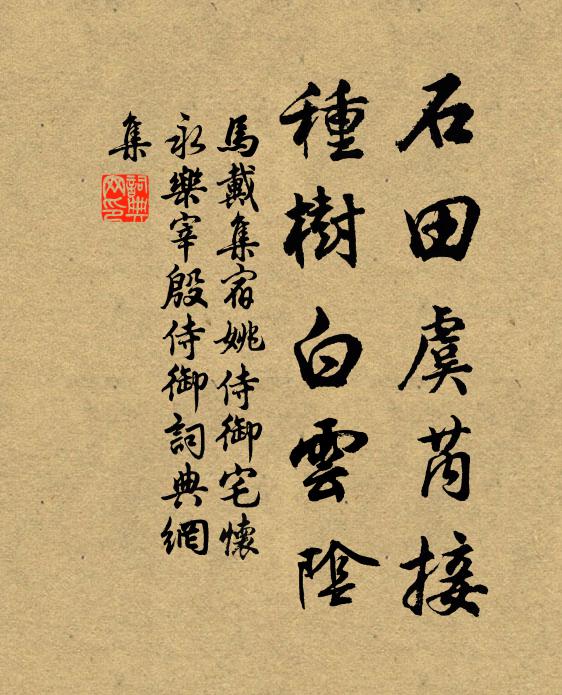 石田虞芮接
種樹白雲陰
馬戴集宿姚侍御宅懷
永樂宰殷侍御詞典網
集
詞典網印